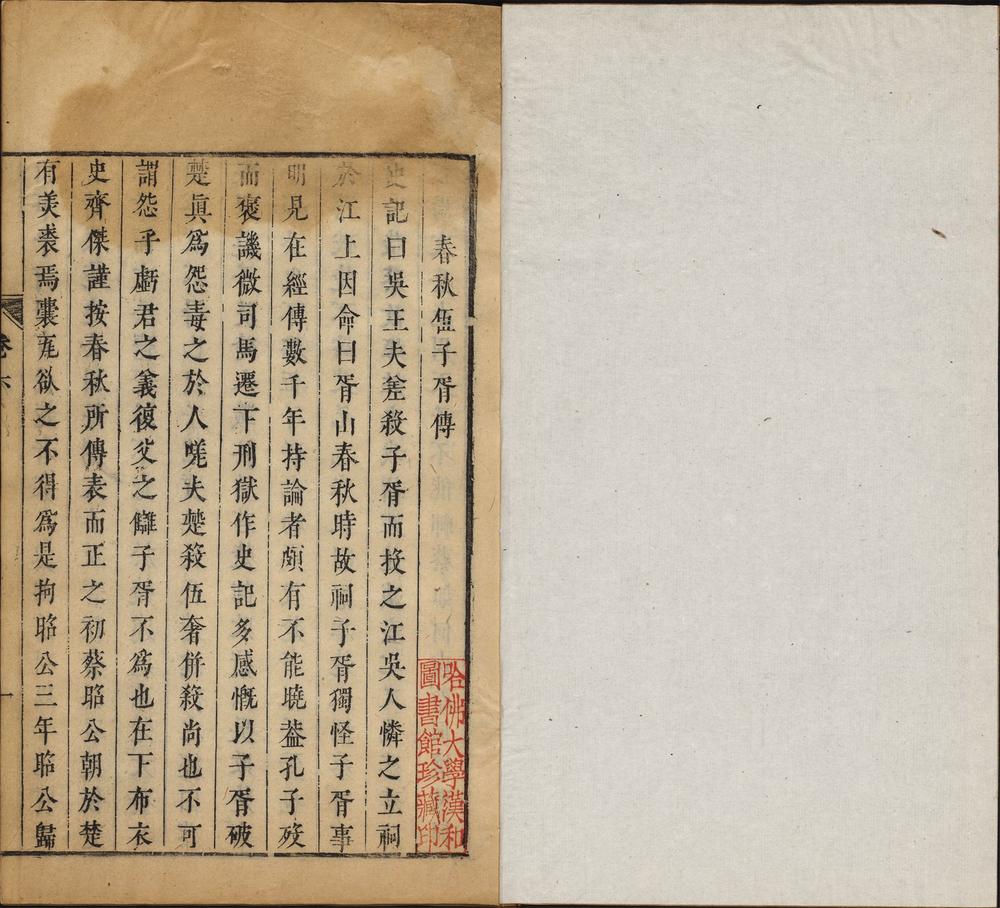 春秋伍子胥傳
史記曰吳王夫差殺子胥而投之江吳人憐之立祠
於江上因命曰胥山春秋時故祠子胥獨怪子胥事
明見在經傳數千年持論者頗有不能曉葢孔子歿
而褒譏微司馬遷下刑獄作史記多感慨以子胥破
楚眞爲怨毒之於人嗟夫楚殺伍奢併殺尚也不可
謂怨乎虧君之義復父之讎子胥不爲也在下布衣
史齊傑謹按春秋所傳表而正之初蔡昭公朝於楚
有美裘焉囊瓦欲之不得爲是拘昭公三年昭公歸
卷六
一
哈佛大學漢和
圖書館珍藏印